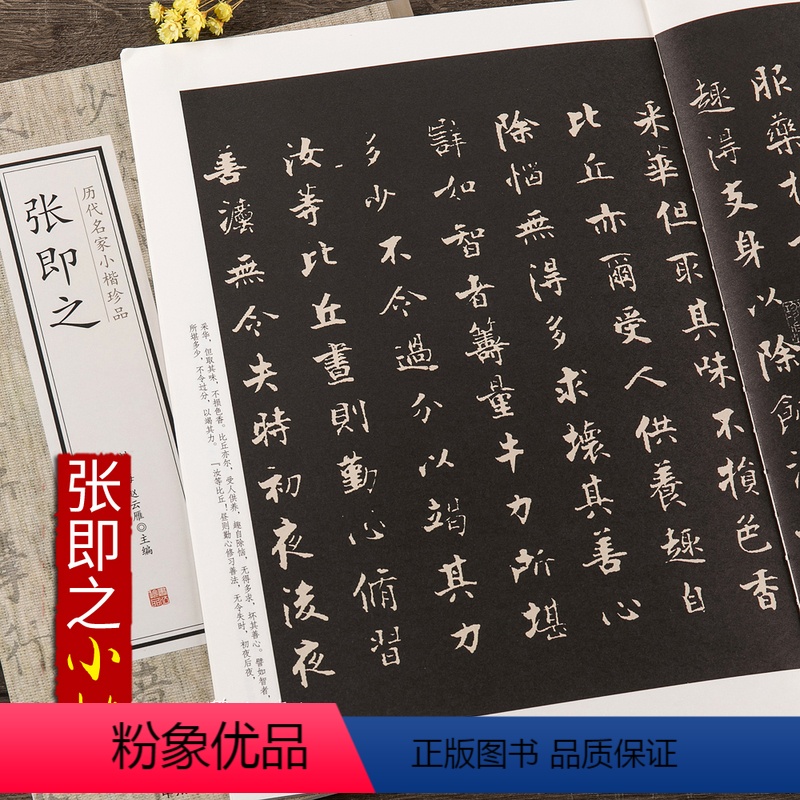 服藥
趣得支身以除飢
采華但取其味不損色香
比丘亦爾受人供養趣自
除惱無得多求壞其善心
如智者籌量牛力所堪
多少不令過分以竭其力
汝等比丘晝則勤心脩習
善灋無令失時初夜後夜
采华，但取其味，不损色香。比丘亦尔，受人供养，趣自除恼，无得多求，坏其善心。譬如智者，
所堪多少，不令过分，以竭其力。「汝等比丘！昼则勤心修习善法，无令失时，初夜后夜，
历代名家小楷珍品
张即之
赵云雁◎主编
张即之小
粉象优品
正版图书 品质保证